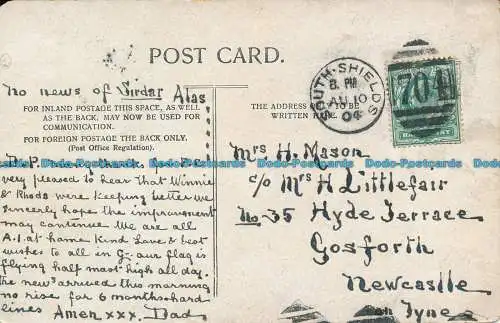 POST CARD.
no news of Sirdar Alas
FOR INLAND POSTAGE THIS SPACE, AS WELL
AS THE BACK, MAY NOW BE USED FOR
COMMUNICATION.
FOR FOREIGN POSTAGE THE BACK ONLY.
(Post Office Regulation).
very pleased to hear that Winnie
& Rhoda were keeping better we
sincerely hope the improvement
may continue. We are all
A.1. at home Kind Love & best
wishes to all in G- our flag is
flying half mast high all day.
the news arrived this morning
no rise for 6 months hard
lines Amen xxx. Dad
THE ADDRESS ONLY TO BE
WRITTEN HERE.
SOUTH-SHIELDS
8. PM
AU 10
04
704
Mrs H. Mason
c/o Mrs H Littlefair
No 35 Hyde Terrace
Gosforth
Newcastle
on Tyne
Dodo-Postcards